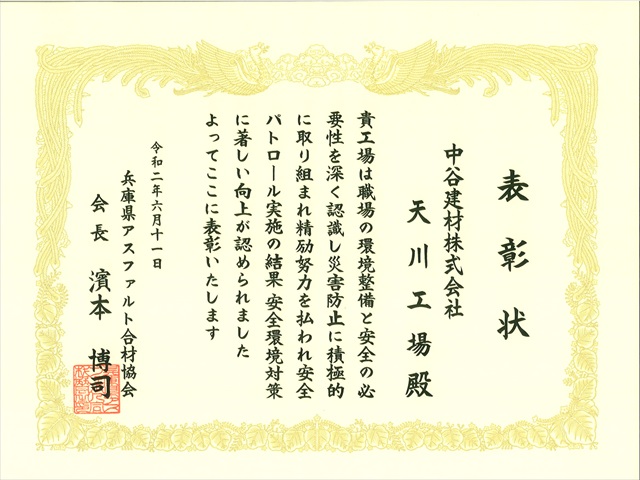 表彰状
中谷建材株式会社
天川工場殿
貴工場は職場の環境整備と安全の必
要性を深く認識し災害防止に積極的
に取り組まれ精励努力を払われ安全
パトロール実施の結果 安全環境対策
に著しい向上が認められました
よってここに表彰いたします
令和二年六月十一日
兵庫県アスファルト合材協会
会長 濱本 博司